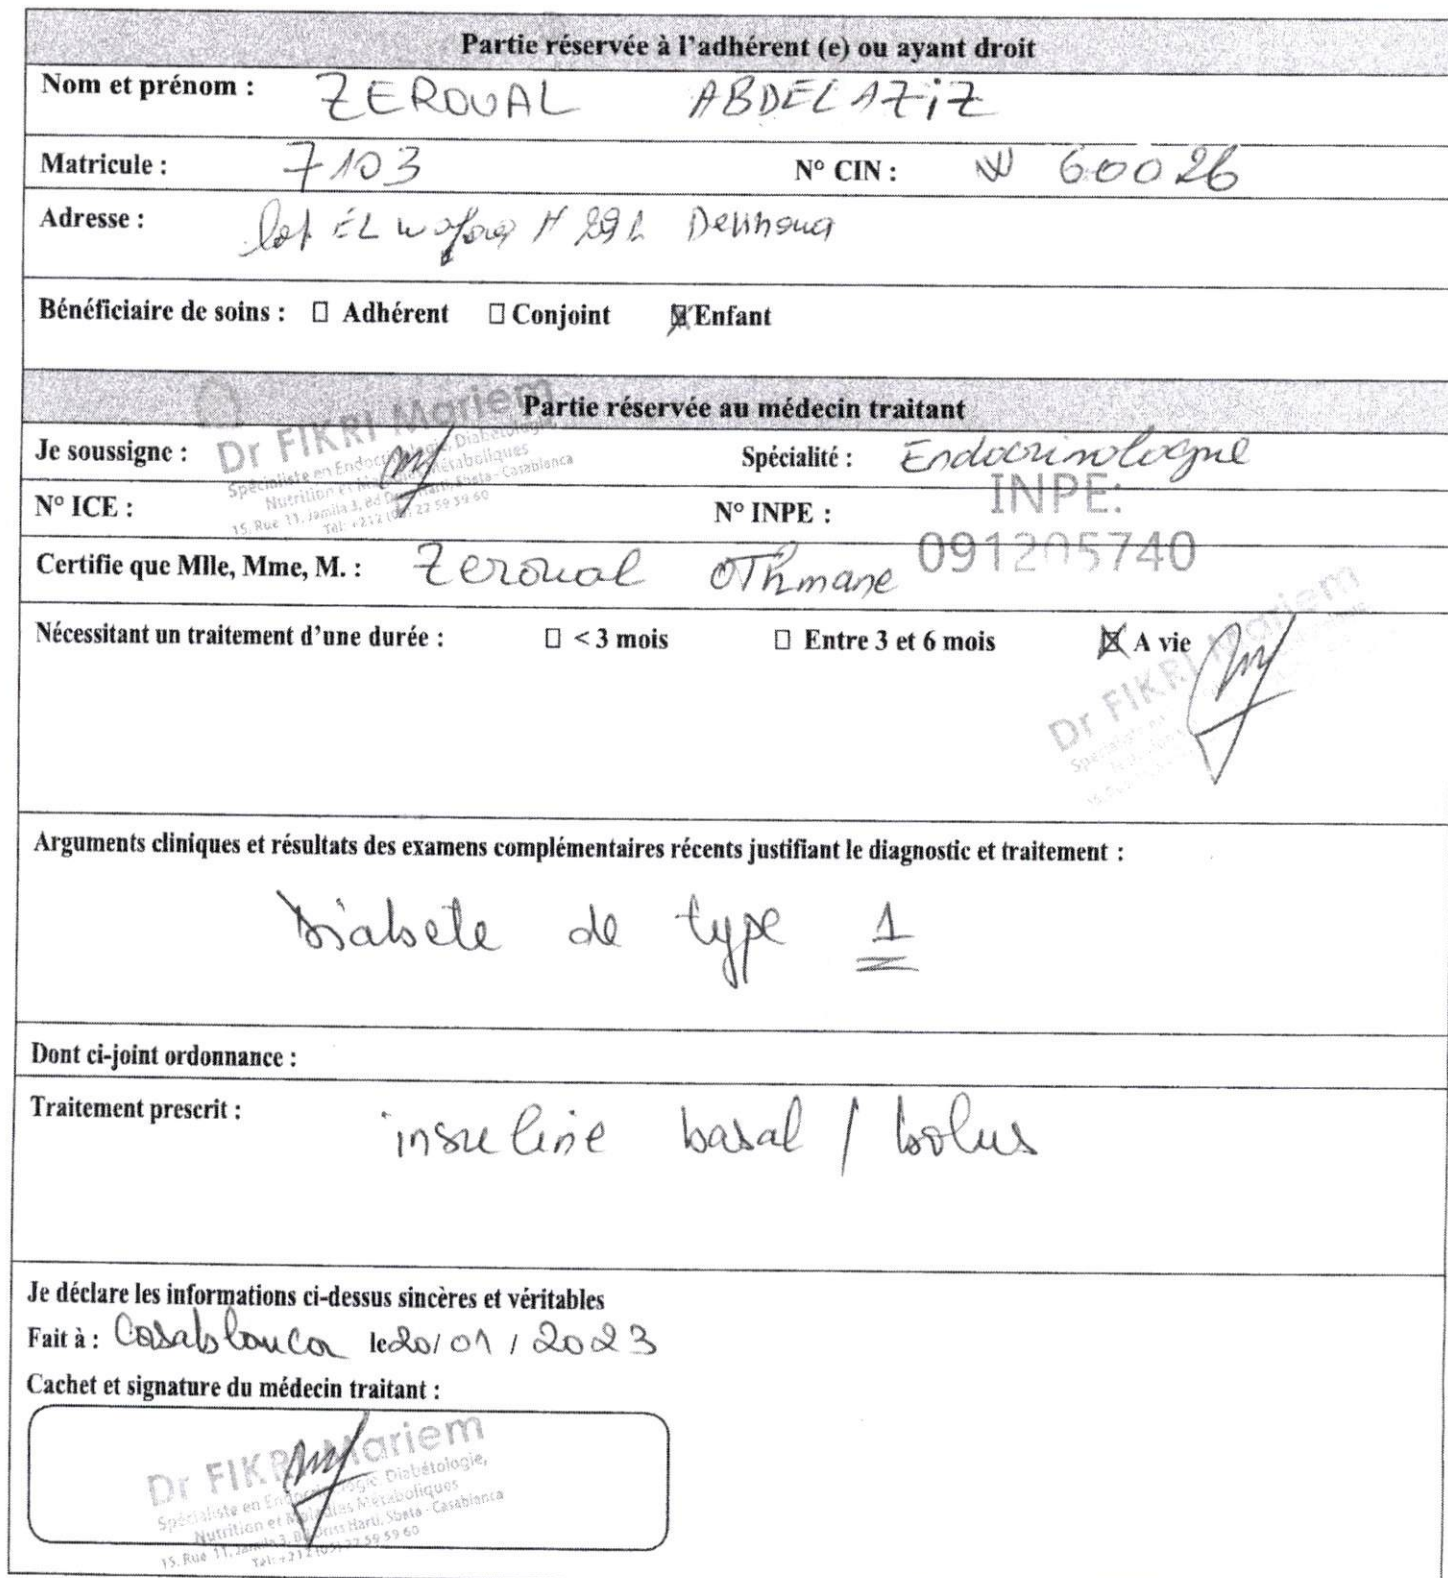 Partie réservée à l'adhérent (e) ou ayant droit
Nom et prénom : ZEROUAL ABDELAZiZ
Matricule : 7103 N° CIN : W 60026
Adresse : lot EL
Bénéficiaire de soins : ☐ Adhérent ☐ Conjoint ☒ Enfant
Partie réservée au médecin traitant
Dr FIKRI Mariem
Je soussigne : Spécialité : Endocrinologue
N° ICE : N° INPE : INPE:
Certifie que Mlle, Mme, M. : Zeroual OThmane 091205740
Nécessitant un traitement d'une durée : ☐ < 3 mois ☐ Entre 3 et 6 mois ☒ A vie
Dr FIKRI Mariem
Arguments cliniques et résultats des examens complémentaires récents justifiant le diagnostic et traitement :
Diabete de type 1
Dont ci-joint ordonnance :
Traitement prescrit : insuline basal / bolus
Je déclare les informations ci-dessus sincères et véritables
Fait à : Casablanca le 20/01/2023
Cachet et signature du médecin traitant :
Dr FIKRI Mariem
Spécialiste en Endocrinologie Diabétologie,
Nutrition et Maladies Métaboliques
15, Rue 11, Jamila 3, Bd Driss Harti, Sbata - Casablanca
Tél: +212 (05) 22 59 59 60